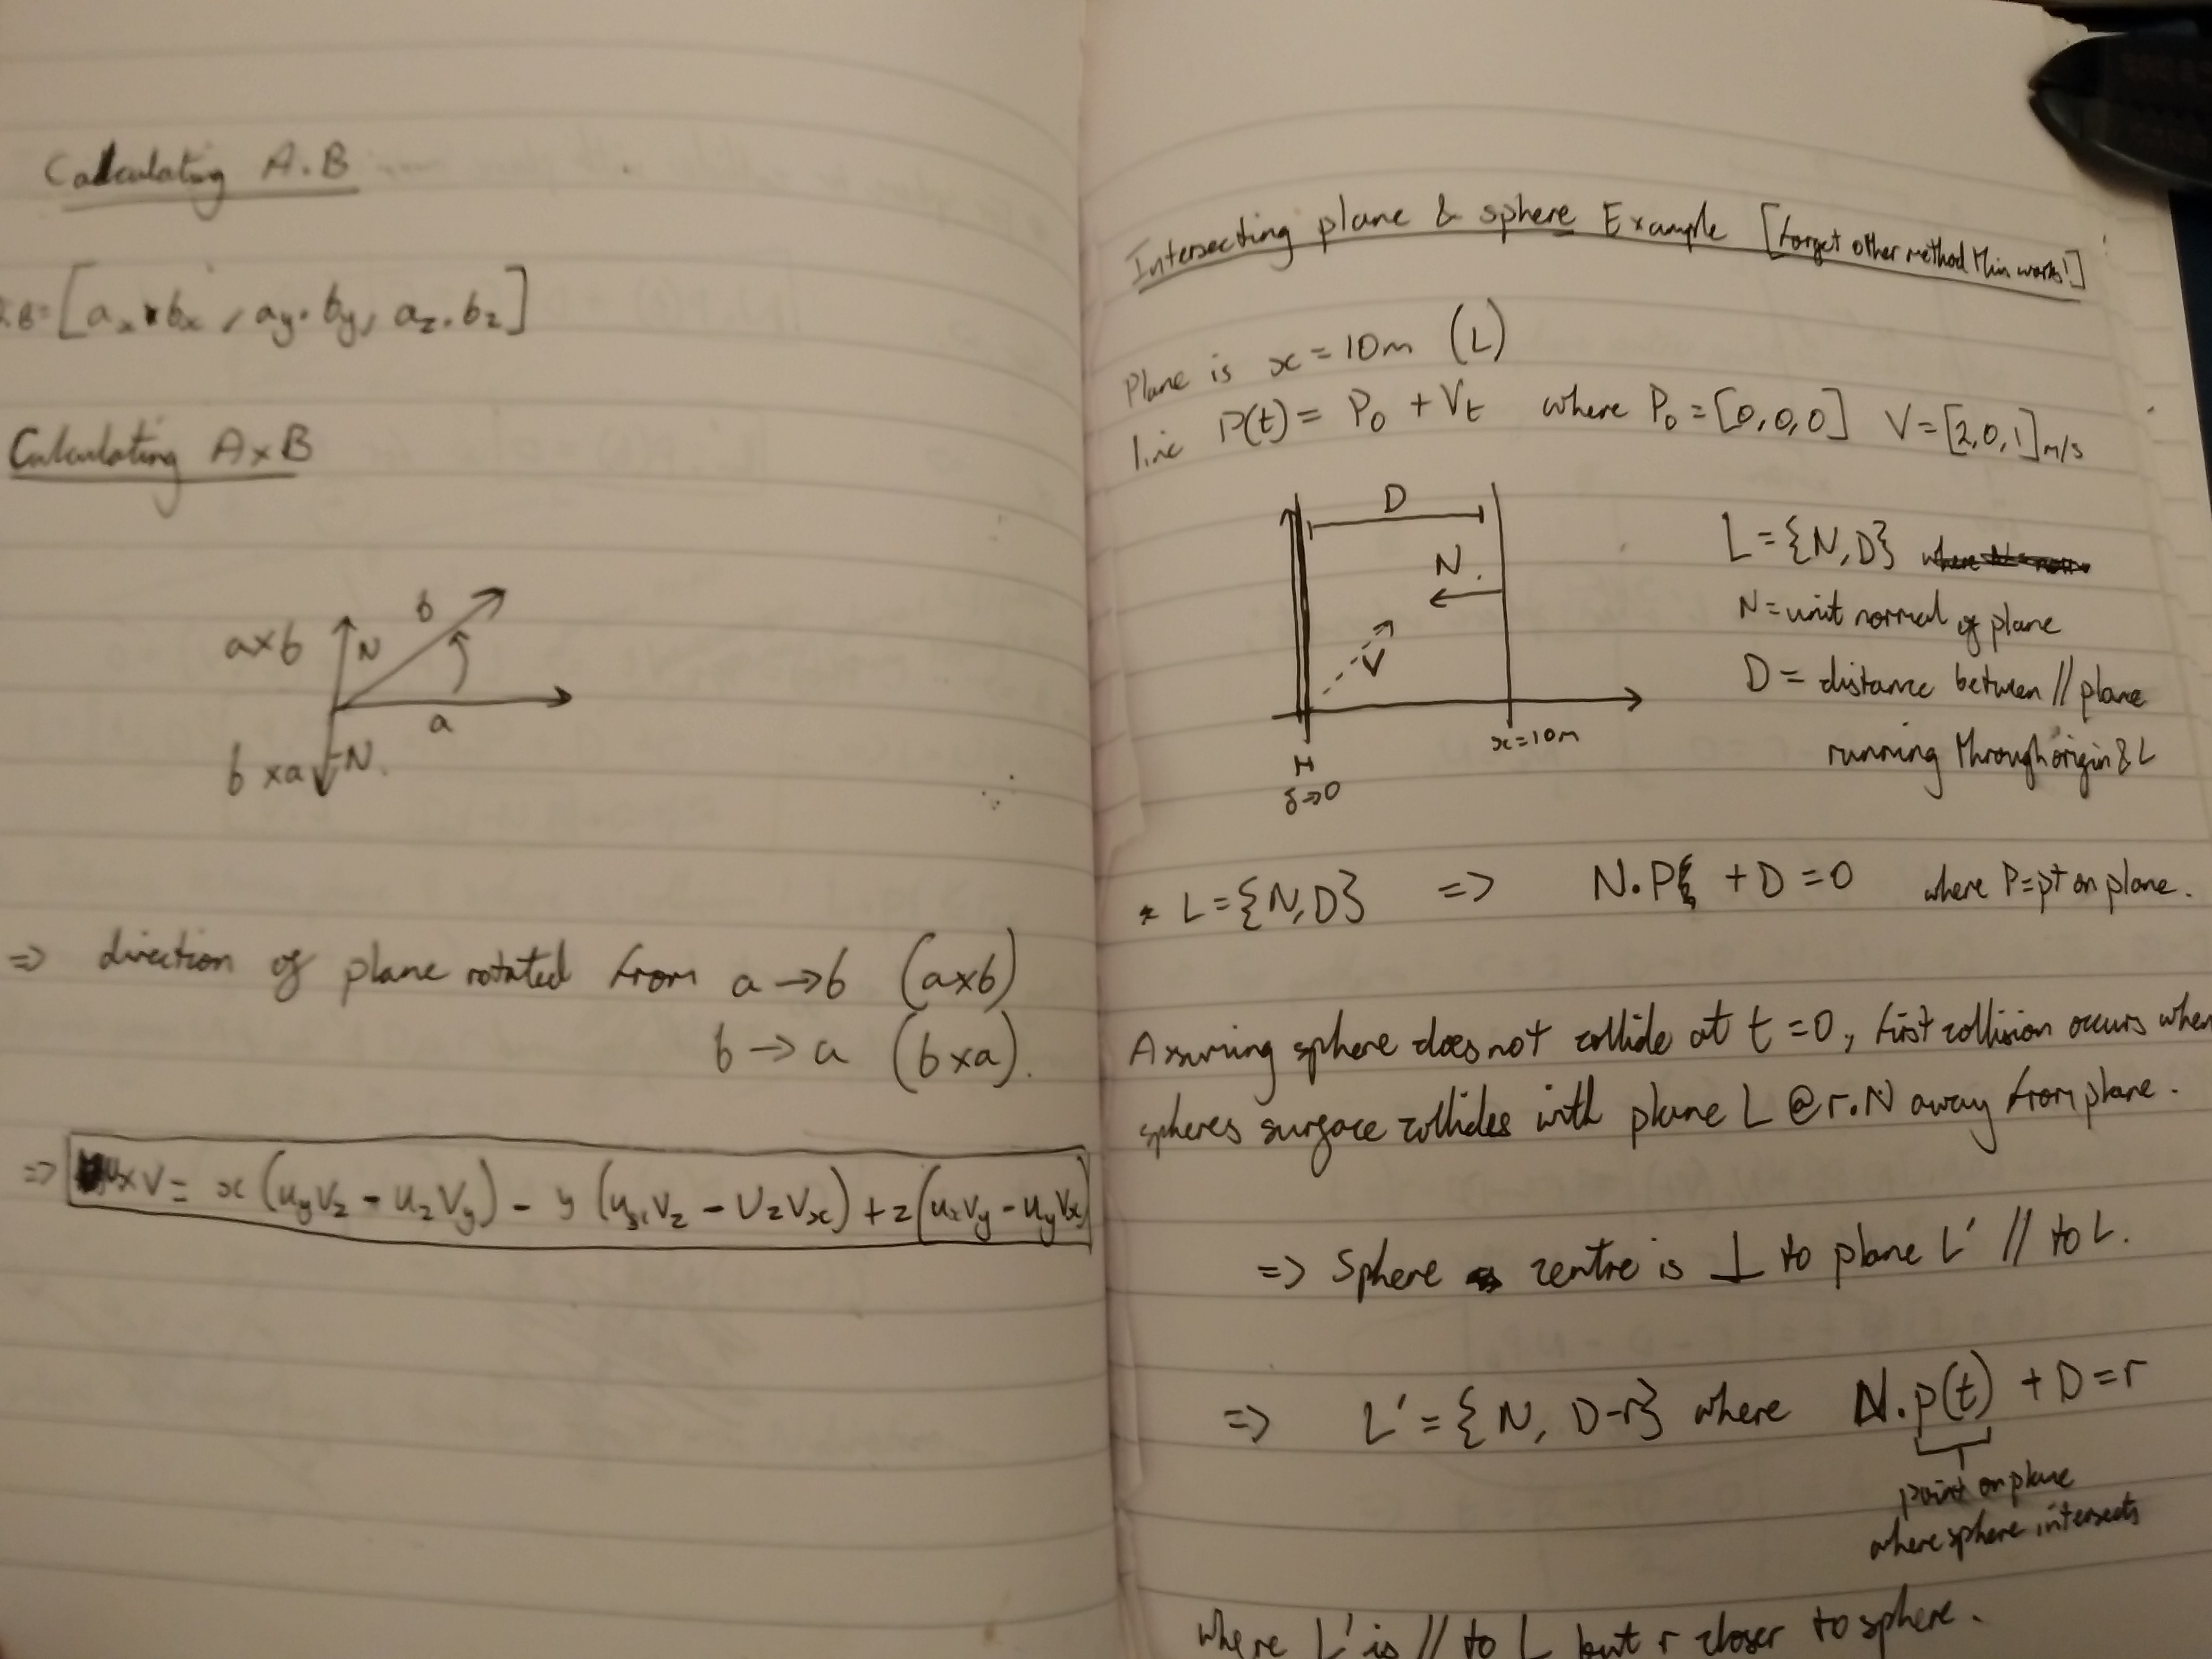 Calculating A.B
A.B=[ax • bx , ay. by, az. bz]
Calculating A×B
a×b
N
b
a
b×a
-N.
=> direction of plane rotated from a→b (a×b)
b→a (b×a).
=> u×v = x(uyvz - uzvy) - y(uxvz - uzvx) + z(uxvy - uyvx)
Intersecting plane & sphere Example [forget other method this works!]
Plane is x=10m (L)
line P(t)= P0 + Vt where P0 =[0,0,0] V=[2,0,1]m/s
D
N.
V
x=10m
δ→0
L={N,D}
N=unit normal of plane
D= distance between // plane
running through origin & L
* L={N,D} => N.P +D=0 where P=pt on plane.
Assuming sphere does not collide at t=0, first collision occurs when
spheres surface collides with plane L @ r.N away from plane.
=> Sphere centre is ⊥ to plane L' // to L.
=> L'={N, D-r} where N.p(t) +D=r
point on plane
where sphere intersects
where L' is // to L but r closer to sphere.